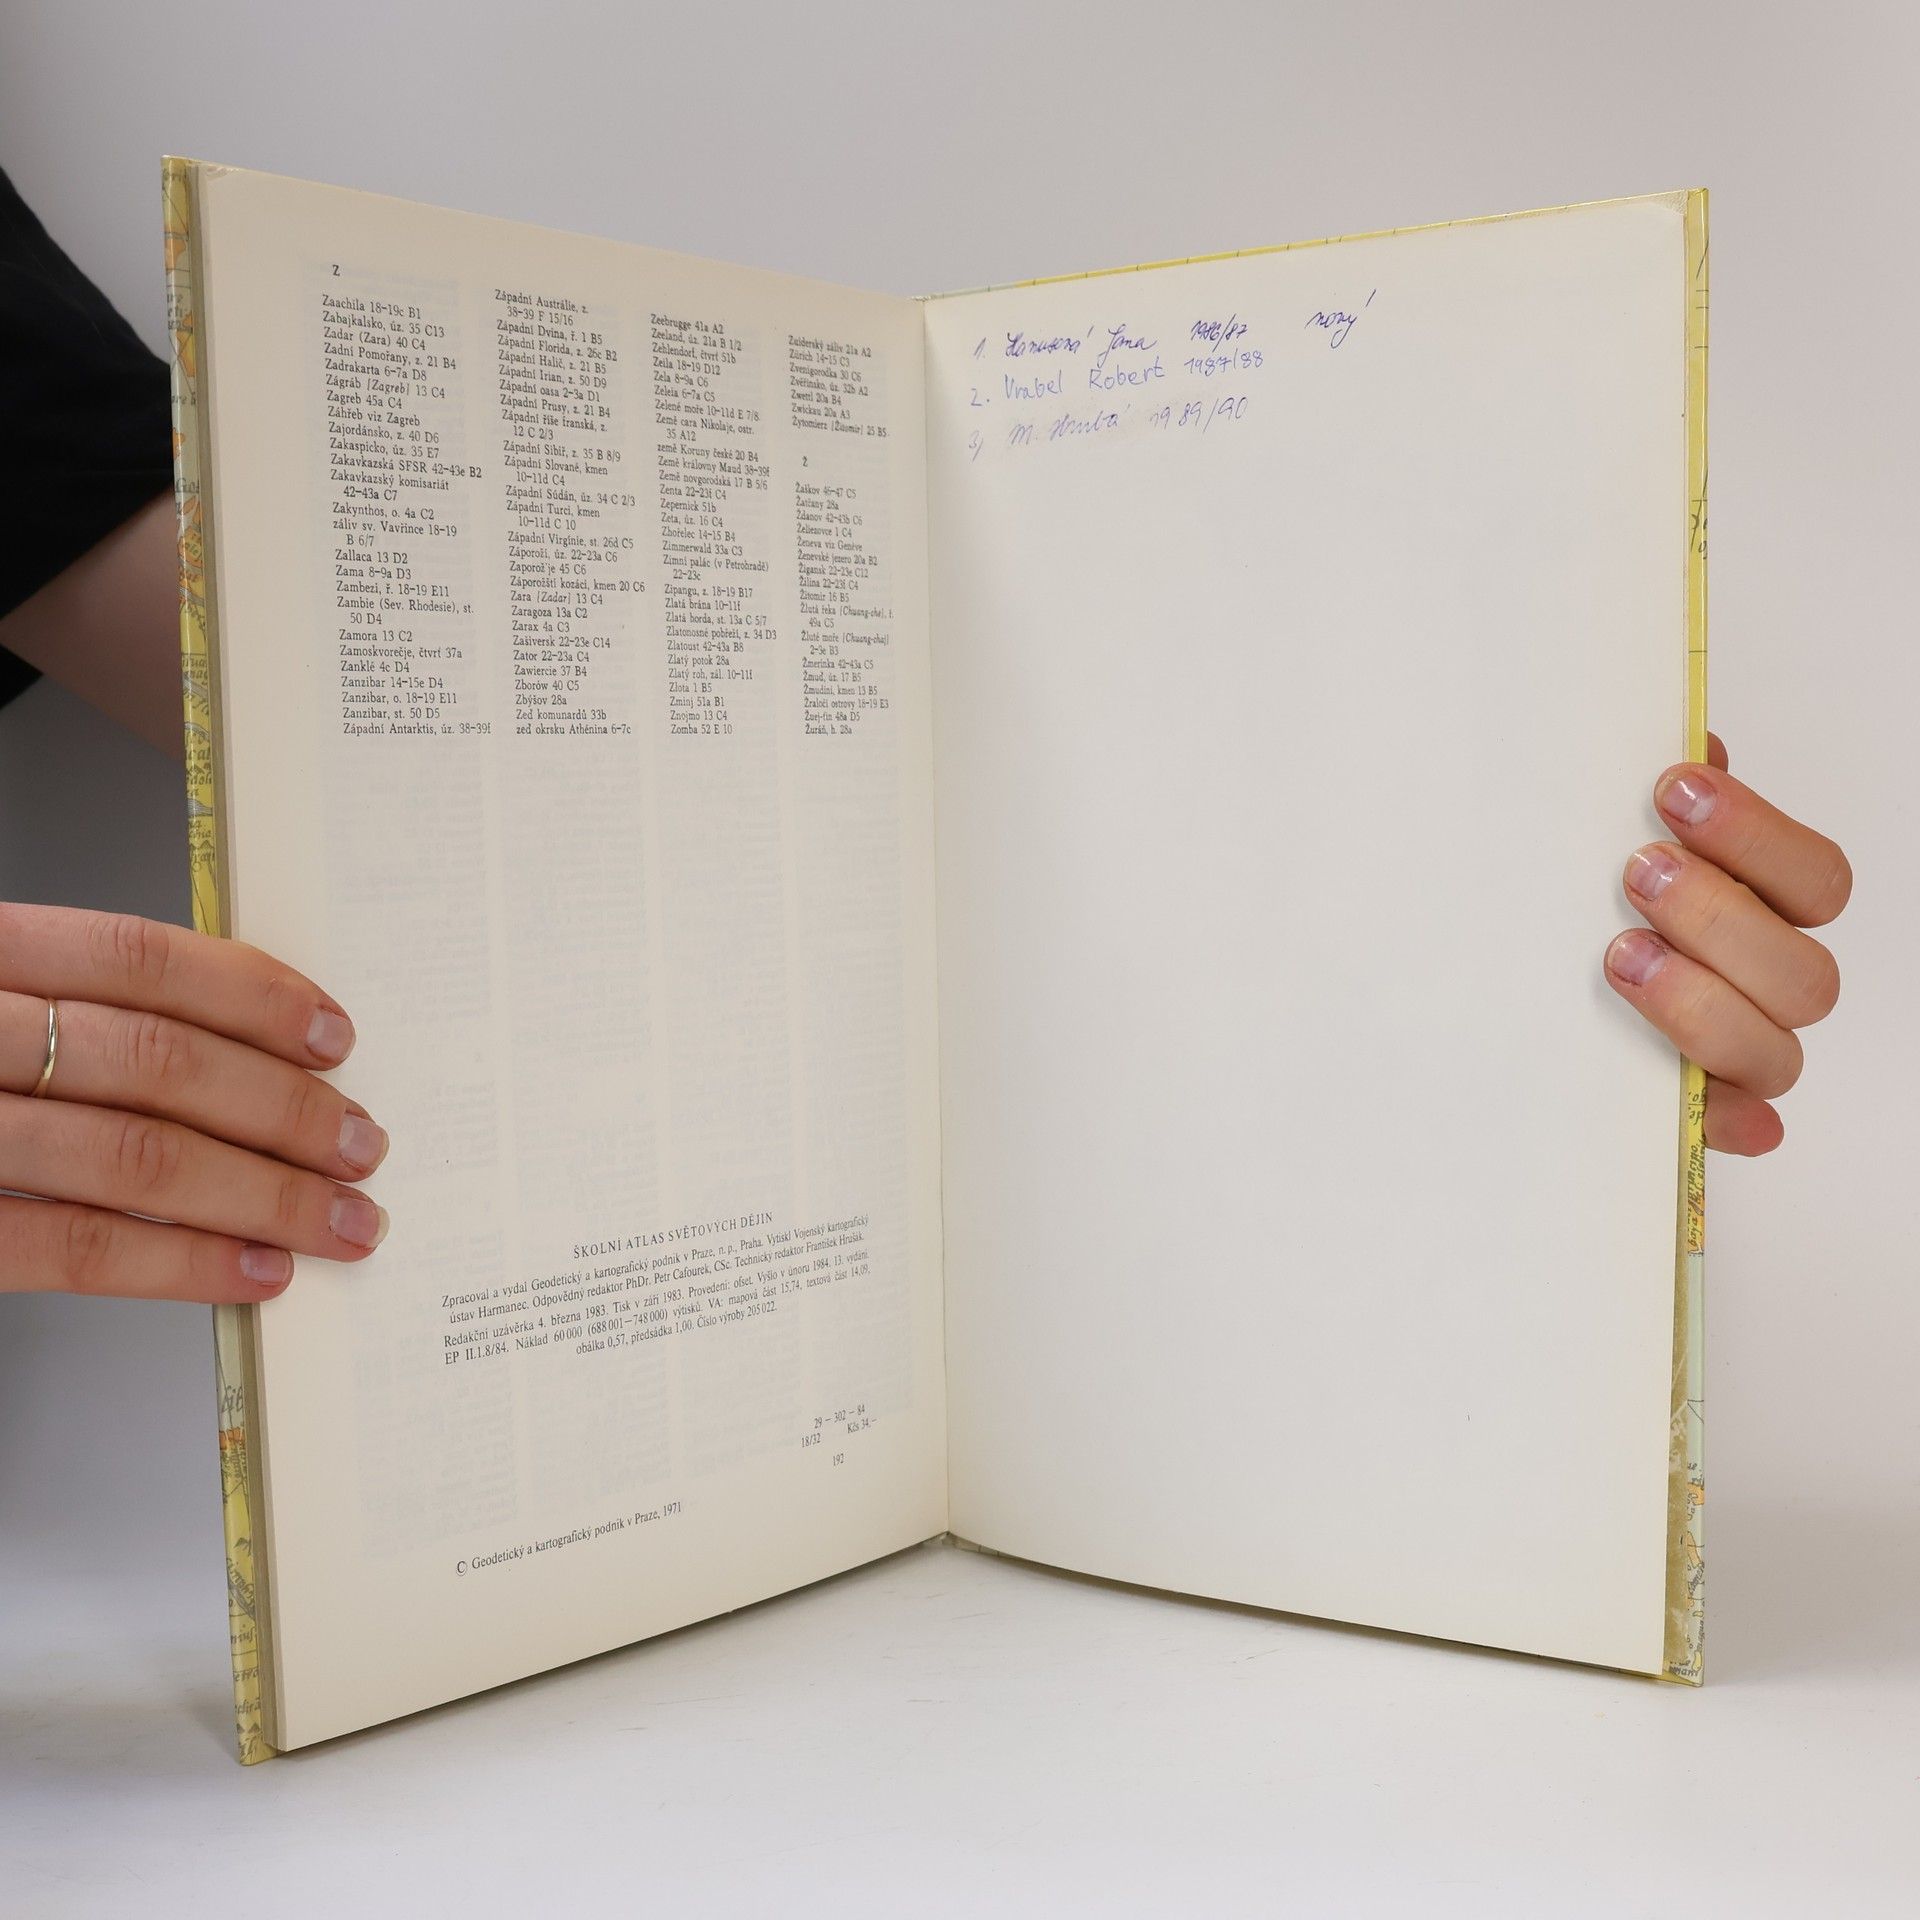 Z
Zaachila 18-19c B1
Zabajkalsko, úz. 35 C13
Zadar (Zara) 40 C4
Zadní Pomořany, z. 21 B4
Zadrakarta 6-7a D8
Zágráb [Zagreb] 13 C4
Zagreb 45a C4
Záhřeb viz Zagreb
Zajordánsko, z. 40 D6
Zakaspicko, úz. 35 E7
Zakavkazská SFSR 42-43e B2
Zakavkazský komisariát
42-43a C7
Zakynthos, o. 4a C2
záliv sv. Vavřince 18-19
B 6/7
Zallaca 13 D2
Zama 8-9a D3
Zambezi, ř. 18-19 E11
Zambie (Sev. Rhodesie), st.
50 D4
Zamora 13 C2
Zamoskvorečje, čtvrť 37a
Zanklé 4c D4
Zanzibar 14-15e D4
Zanzibar, o. 18-19 E11
Zanzibar, st. 50 D5
Západní Antarktis, úz. 38-39f
Západní Austrálie, z.
38-39 F 15/16
Západní Dvina, ř. 1 B5
Západní Florida, z. 26c B2
Západní Halič, z. 21 B5
Západní Irian, z. 50 D9
Západní oasa 2-3a D1
Západní Prusy, z. 21 B4
Západní říše franská, z.
12 C 2/3
Západní Sibiř, z. 35 B 8/9
Západní Slované, kmen
10-11d C4
Západní Súdán, úz. 34 C 2/3
Západní Turci, kmen
10-11d C 10
Západní Virgínie, st. 26d C5
Záporoží, úz. 22-23a C6
Zaporož'je 45 C6
Záporožští kozáci, kmen 20 C6
Zara [Zadar] 13 C4
Zaragoza 13a C2
Zarax 4a C3
Zašiversk 22-23e C14
Zator 22-23a C4
Zawiercie 37 B4
Zborów 40 C5
Zbýšov 28a
Zeď komunardů 33b
zeď okrsku Athénina 6-7c
Zeebrugge 41a A2
Zeeland, úz. 21a B 1/2
Zehlendorf, čtvrť 51b
Zeila 18-19 D12
Zela 8-9a C6
Zeleia 6-7a C5
Zelené moře 10-11d E 7/8
Země cara Nikolaje, ostr.
35 A12
země Koruny české 20 B4
Země královny Maud 38-39f
Země novgorodská 17 B 5/6
Zenta 22-23f C4
Zepernick 51b
Zeta, úz. 16 C4
Zhořelec 14-15 B4
Zimmerwald 33a C3
Zimní palác (v Petrohradě)
22-23c
Zipangu, z. 18-19 B17
Zlatá brána 10-11f
Zlatá horda, st. 13a C 5/7
Zlatonosné pobřeží, z. 34 D3
Zlatoust 42-43a B8
Zlatý potok 28a
Zlatý roh, zál. 10-11f
Zlota 1 B5
Zminj 51a B1
Znojmo 13 C4
Zomba 52 E 10
Zuiderský záliv 21a A2
Zürich 14-15 C3
Zvenigorodka 30 C6
Zvěřinsko, úz. 32b A2
Zwettl 20a B4
Zwickau 20a A3
Żytomierz [Žitomir] 25 B5
Ž
Žaškov 46-47 C5
Žatčany 28a
Ždanov 42-43b C6
Želiezovce 1 C4
Ženeva viz Genève
Ženevské jezero 20a B2
Žigansk 22-23e C12
Žilina 22-23f C4
Žitomir 16 B5
Žlutá řeka [Chuang-che], ř.
49a C5
Žluté moře [Chuang-chaj]
2-3e B3
Žmerinka 42-43a C5
Žmuď, úz. 17 B5
Žmudíni, kmen 13 B5
Žraločí ostrovy 18-19 E3
Žuej-ťin 48a D5
Žuráň, h. 28a
ŠKOLNÍ ATLAS SVĚTOVÝCH DĚJIN
Zpracoval a vydal Geodetický a kartografický podnik v Praze, n. p., Praha. Vytiskl Vojenský kartografický
ústav Harmanec. Odpovědný redaktor PhDr. Petr Cafourek, CSc. Technický redaktor František Hrušák.
Redakční uzávěrka 4. března 1983. Tisk v září 1983. Provedení: ofset. Vyšlo v únoru 1984. 13. vydání.
EP II.1.8/84. Náklad 60 000 (688 001—748 000) výtisků. VA: mapová část 15,74, textová část 14,09,
obálka 0,57, předsádka 1,00. Číslo výroby 205 022.
29 — 302 — 84
18/32 Kčs 34,—
192
© Geodetický a kartografický podnik v Praze, 1971
1. Hanusová Jana 1986/87 nový
2. Vrabel Robert 1987/88
3) M. Hrubá 1989/90